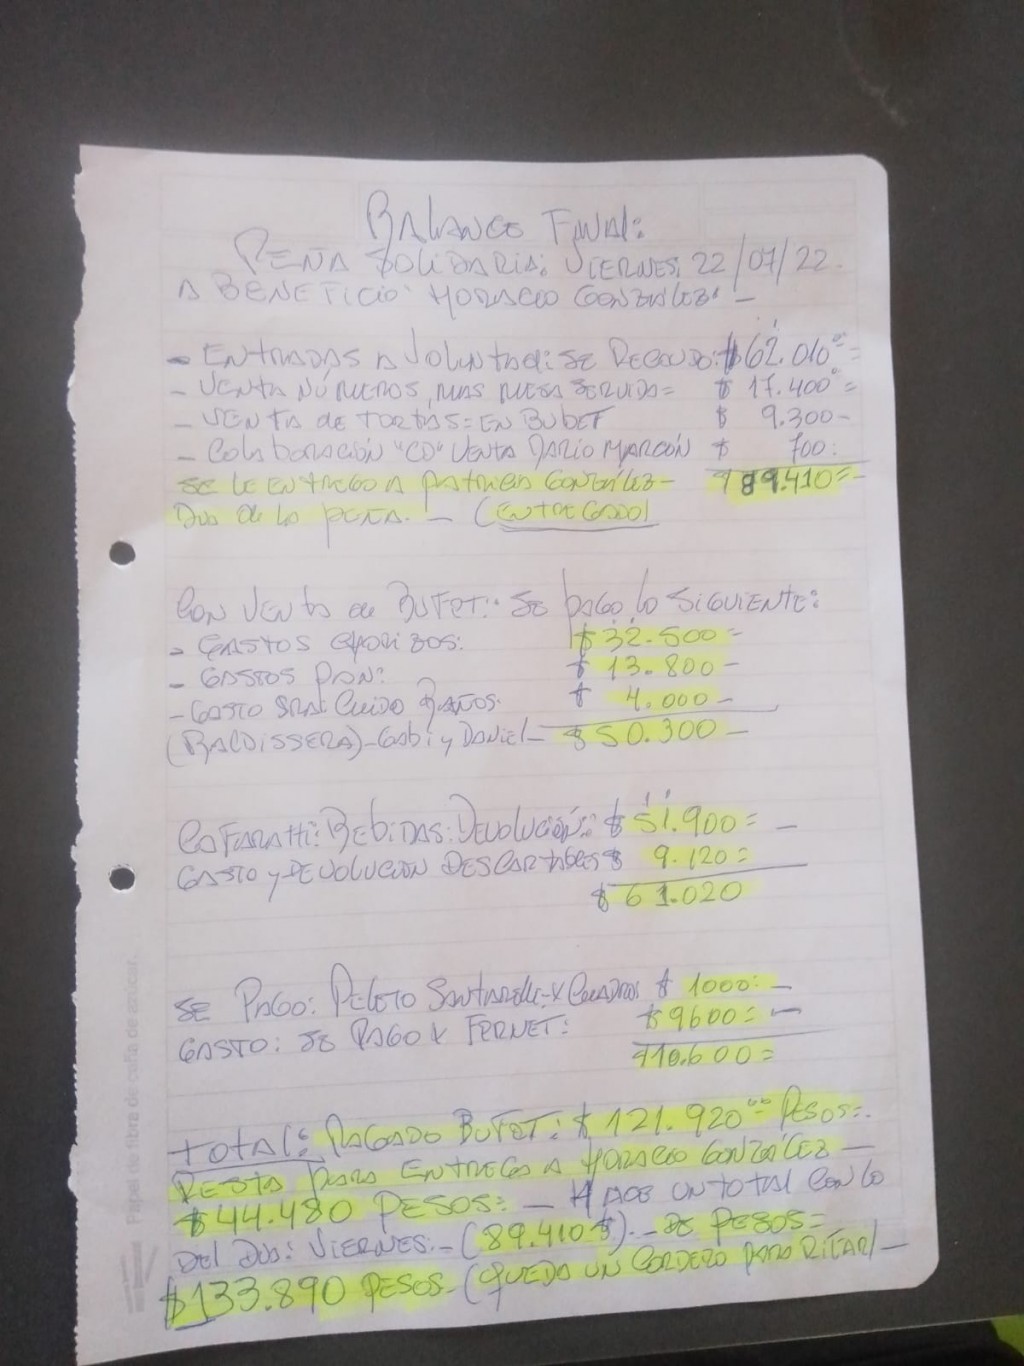 BALANCE FINAL:
PEÑA SOLIDARIA: VIERNES: 22/07/22.
A BENEFICIO: HORACIO GONZÁLEZ: —
- ENTRADAS A VOLUNTAD: SE RECAUDO: $ 62.010⁰⁰=
- VENTA NÚMEROS, MAS MESA SERVIDA= $ 17.400⁰=
- VENTA de TORTAS= EN BUBET $ 9.300-
- COLABORACIÓN "CD" VENTA DARIO MARCÓN $ 700:
SE LE ENTREGO A PATRICIA GONZÁLEZ- $ 89.410=-
DIA de LA PEÑA. — (ENTREGADO)
CON VENTA de BUFET: SE PAGO LO SIGUIENTE:
- GASTOS CHORIZOS: $ 32.500=
- GASTOS PAN: $ 13.800-
- GASTO SRA: CUIDO BAÑOS: $ 4.000-
(BALDISSERA)-GABI y DANIEL- $ 50.300-
CAFARATTI: BEBIDAS: DEVOLUCIÓN: $ 51.900= -
GASTO y DEVOLUCION DESCARTABLES $ 9.120=
$ 61.020
SE PAGO: PELOTO SANTARELLI-X CUADROS $ 1000: -
GASTO: SE PAGO X FERNET: $ 9600= -
$ 10.600=
TOTAL: PAGADO BUFET: $ 121.920⁰⁰ PESOS=.
RESTA PARA ENTREGA A HORACIO GONZÁLEZ —
$ 44.480 PESOS= — HACE UN TOTAL CON LO
DEL DIA: VIERNES.-(89.410$).- DE PESOS=
$133.890 PESOS-(QUEDA UN CORDERO PARA RIFAR)-
Papel de fibra de caña de azúcar.